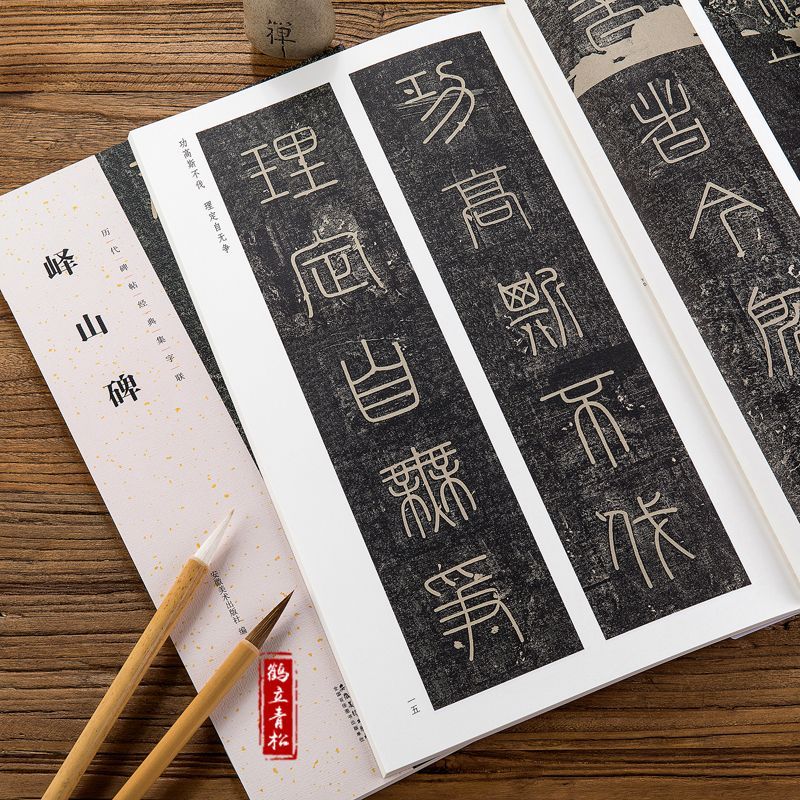 禅
功高斯不伐　理定自无争
功高斯不伐
理定自無爭
者令
一五
峄山碑
历代碑帖经典集字联
安徽美术出版社 编
鹤立青松